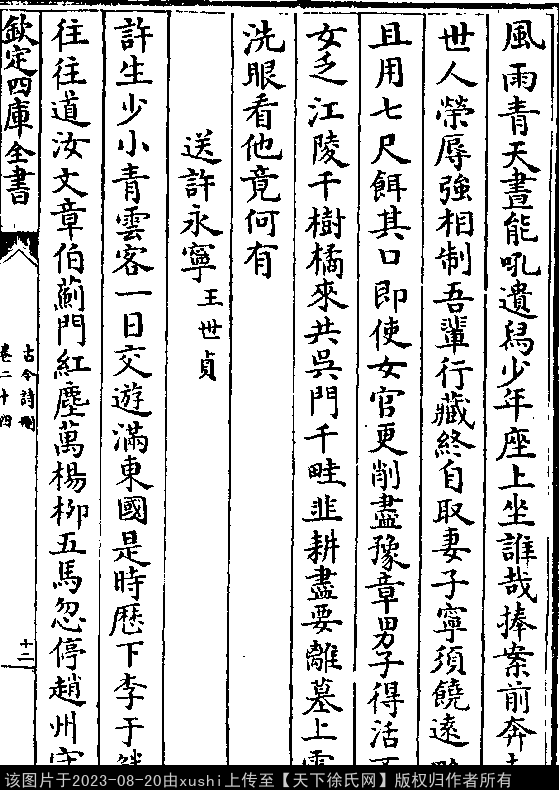 風雨青天晝能吼遺舄少年座上坐誰哉捧案前奔
世人榮辱強相制吾輩行藏終自取妻子寧須饒遠
且用七尺餌其口即使女官更削盡豫章男子得活
女乏江陵千樹橘來共吳門千畦韭耕盡要離墓上
洗眼看他竟何有
送許永寧 王世貞
許生少小青雲客一日交遊滿東國是時歷下李于
往往道汝文章伯薊門紅塵萬楊柳五馬忽停趙州守
欽定四庫全書
古今詩刪
卷二十四
十二
该图片于2023-08-20由xushi上传至【天下徐氏网】版权归作者所有